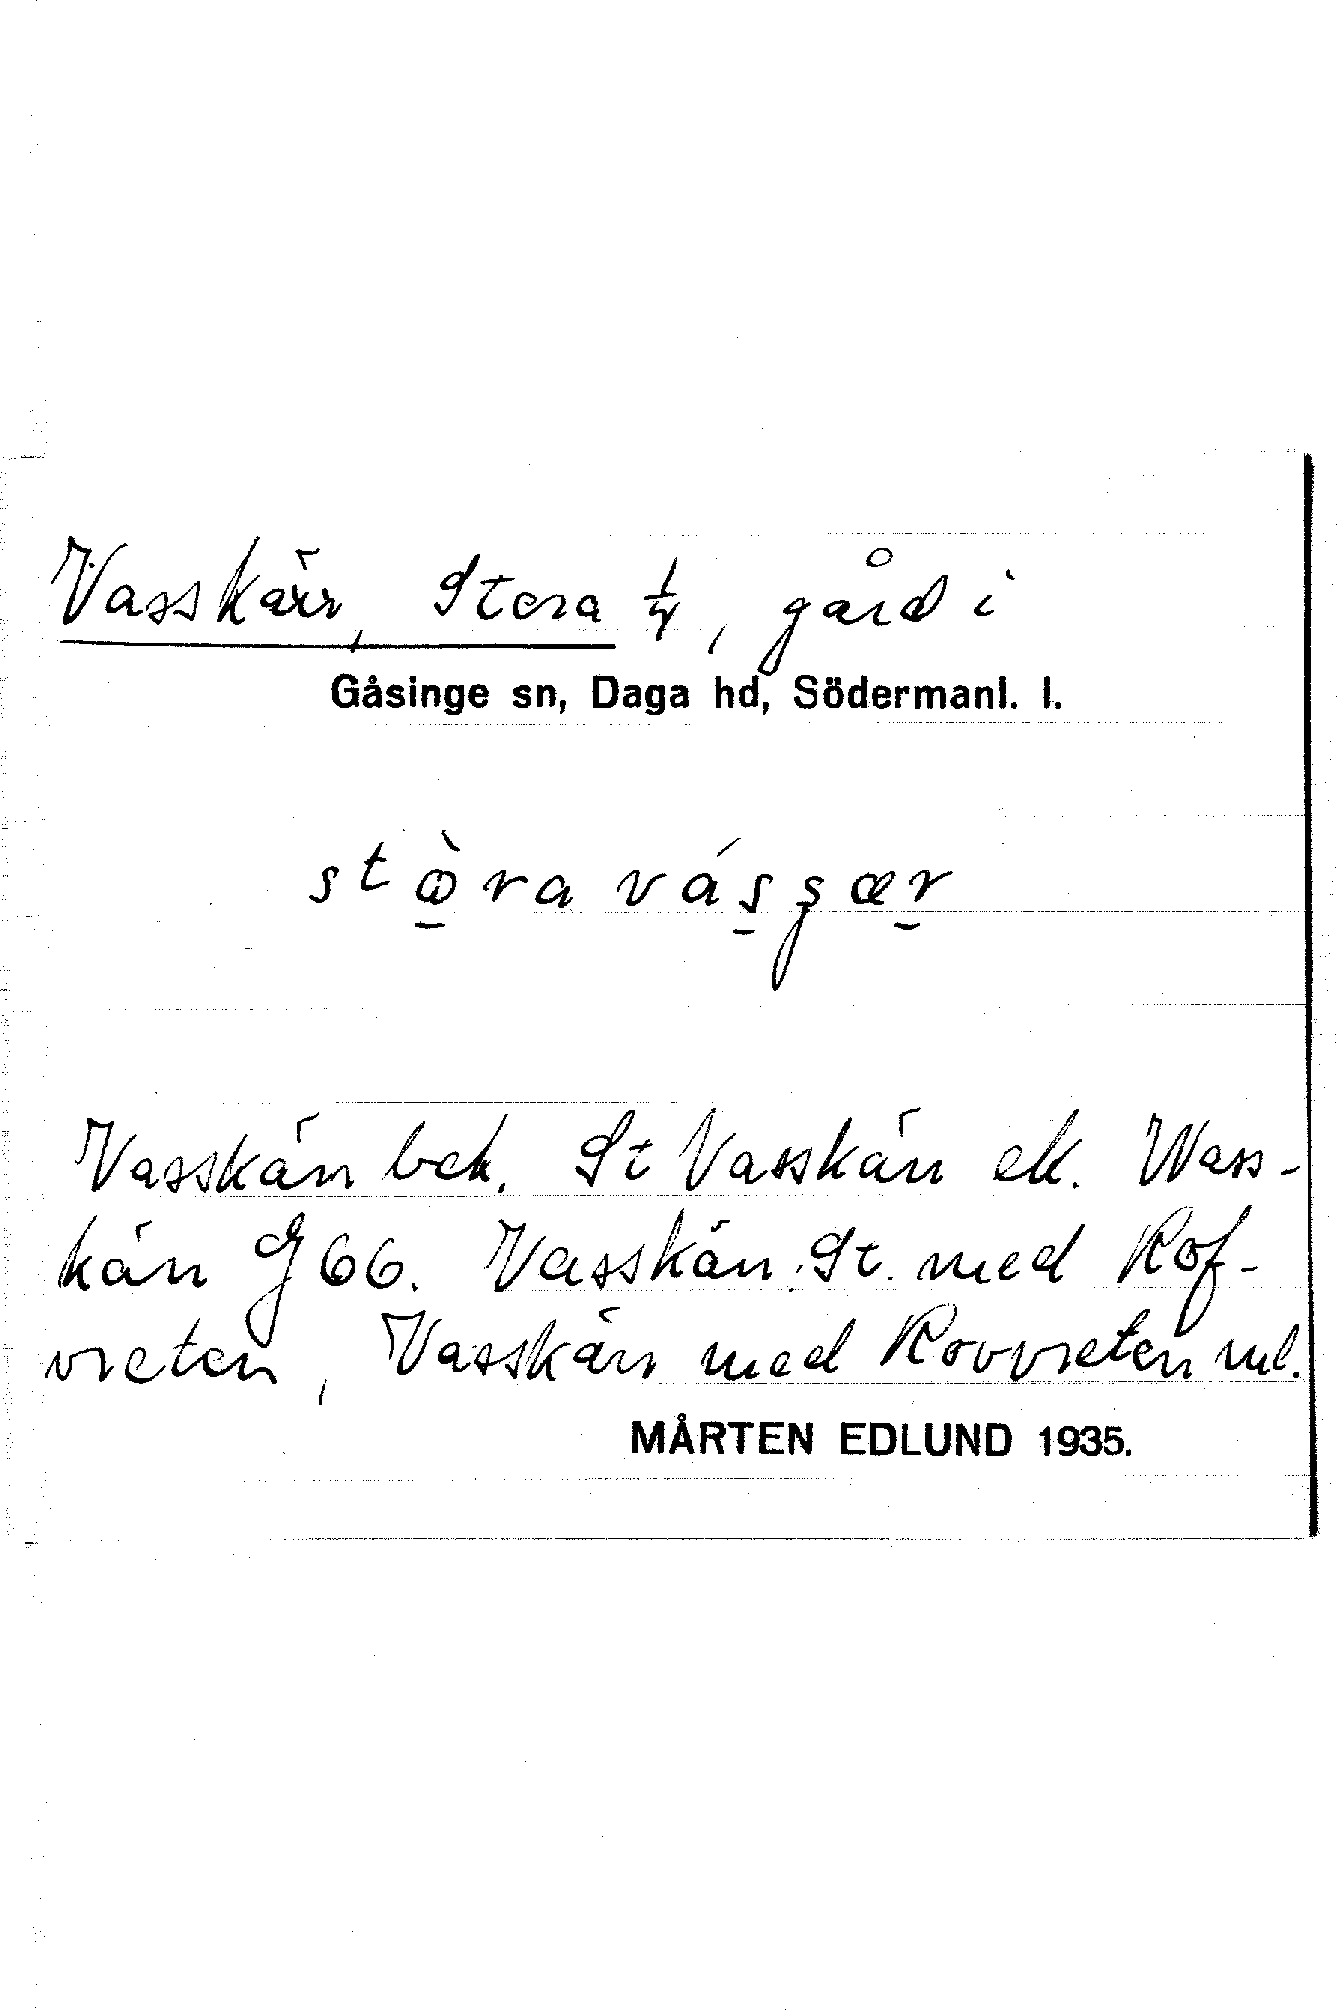 Vasskärr, Stora ¼, gård i
Gåsinge sn, Daga hd, Södermanl. l.
stòra vásʂær
Vasskärr bek. St Vasskärr ek. Wass-
kärr G 66. Vasskärr St. med Rof-
vreten, Vasskärr med Rovvreten ml.
MÅRTEN EDLUND 1935.